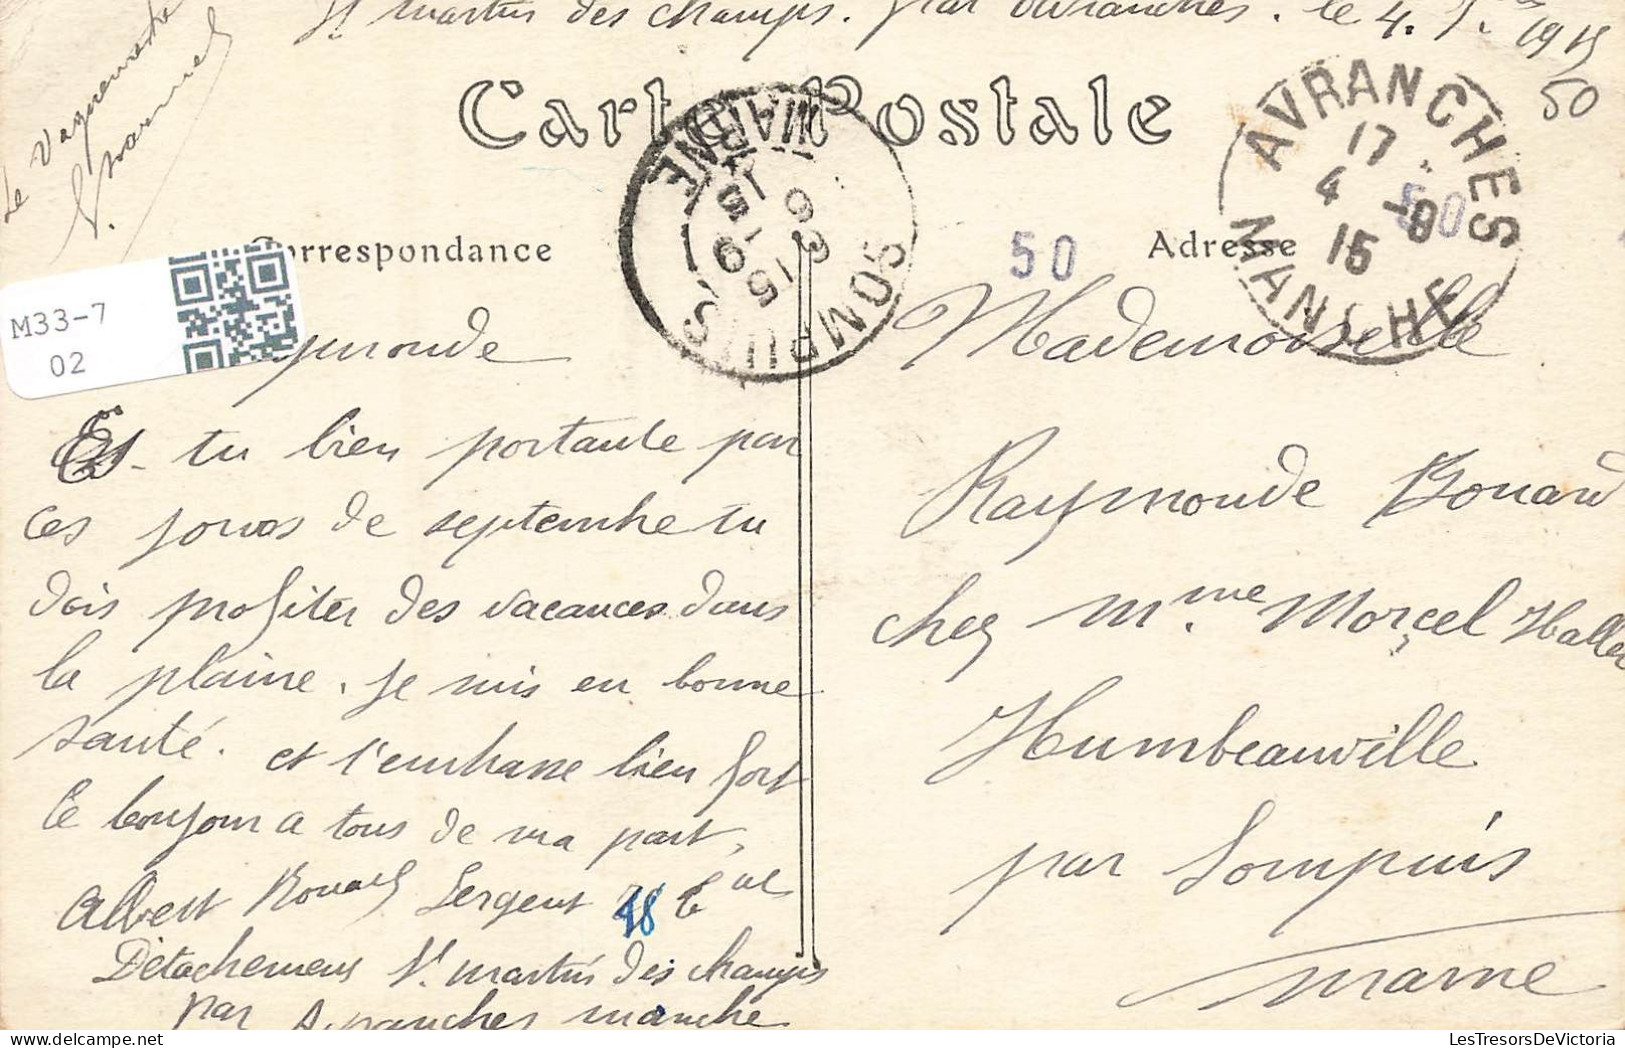 St martin des champs. par avranches. le 4. 1915
Le Vaguemestre
50
Carte Postale
AVRANCHES
MANCHE
17
4 -9
15
50
SOMPUIS
MARNE
15 19
6 9 15
50
Correspondance
Adresse
M33-7
02
ymonde
Es-tu bien portante par
ces jours de septembre tu
dois profiter des vacances dans
la plaine. Je suis en bonne
santé. et t'embrasse bien fort
le bonjour a tous de ma part,
Albert Rouard Sergent 48
Détachement St. martin des champs
par Avranches manche
Mademoiselle
Raymonde Rouard
chez Mme Marcel Haller
Humbeauville
par Sompuis
marne
LesTresorsDeVictoria